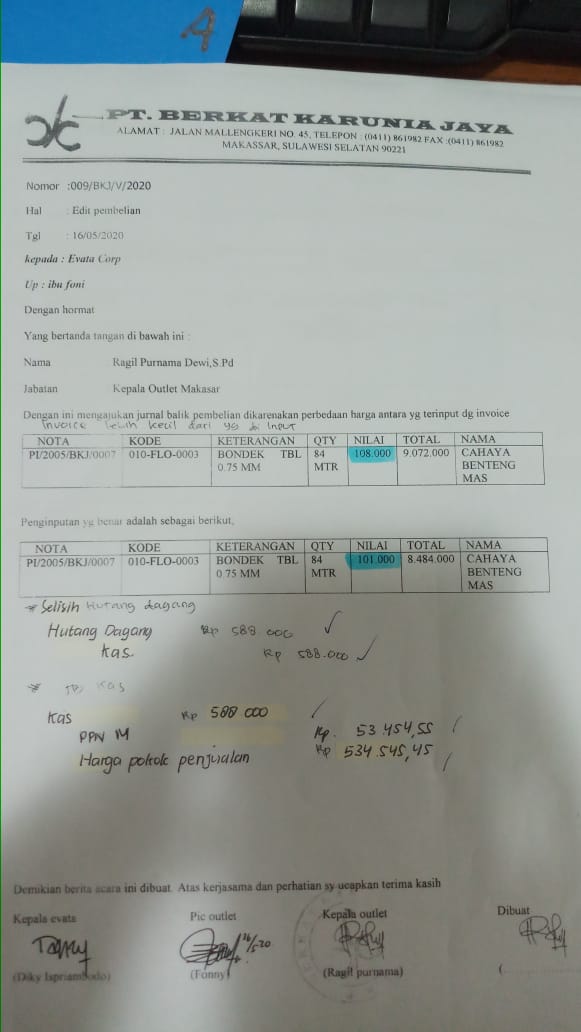 A
PT. BERKAT KARUNIA JAYA
ALAMAT : JALAN MALLENGKERI NO. 45, TELEPON : (0411) 861982 FAX :(0411) 861982
MAKASSAR, SULAWESI SELATAN 90221
Nomor :009/BKJ/V/2020
Hal : Edit pembelian
Tgl : 16/05/2020
kepada : Evata Corp
Up : ibu foni
Dengan hormat
Yang bertanda tangan di bawah ini :
Nama Ragil Purnama Dewi,S.Pd
Jabatan Kepala Outlet Makasar
Dengan ini mengajukan jurnal balik pembelian dikarenakan perbedaan harga antara yg terinput dg invoice
Invoice lebih kecil dari yg di Input
NOTA KODE KETERANGAN QTY NILAI TOTAL NAMA
PI/2005/BKJ/0007 010-FLO-0003 BONDEK TBL 84 108.000 9.072.000 CAHAYA
0.75 MM MTR BENTENG
MAS
Penginputan yg benar adalah sebagai berikut,
NOTA KODE KETERANGAN QTY NILAI TOTAL NAMA
PI/2005/BKJ/0007 010-FLO-0003 BONDEK TBL 84 101.000 8.484.000 CAHAYA
0.75 MM MTR BENTENG
MAS
* Selisih Hutang dagang
Hutang Dagang Rp 588.000
kas. Rp 588.000
* Kas
Kas Rp 588.000
PPN M Rp. 53.454,55
Harga pokok penjualan Rp 534.545,45
Demikian berita acara ini dibuat. Atas kerjasama dan perhatian sy ucapkan terima kasih
Kepala evata Pic outlet Kepala outlet Dibuat
(Diky Ispriambodo) (Fonny) (Ragil purnama) (